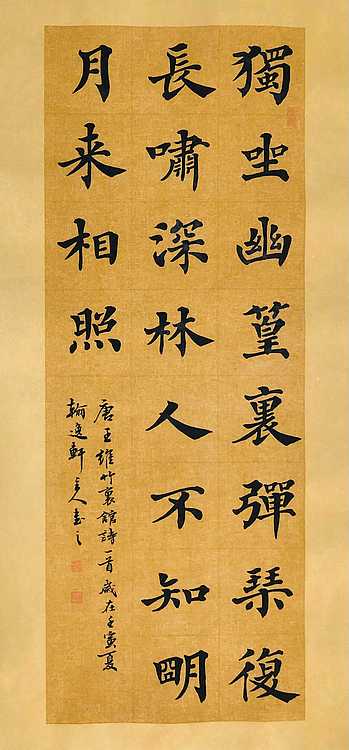 獨坐幽篁裏彈琴復
長嘯深林人不知明
月来相照
唐王維竹裏館詩一首歲在壬寅夏
翰逸軒主人書之